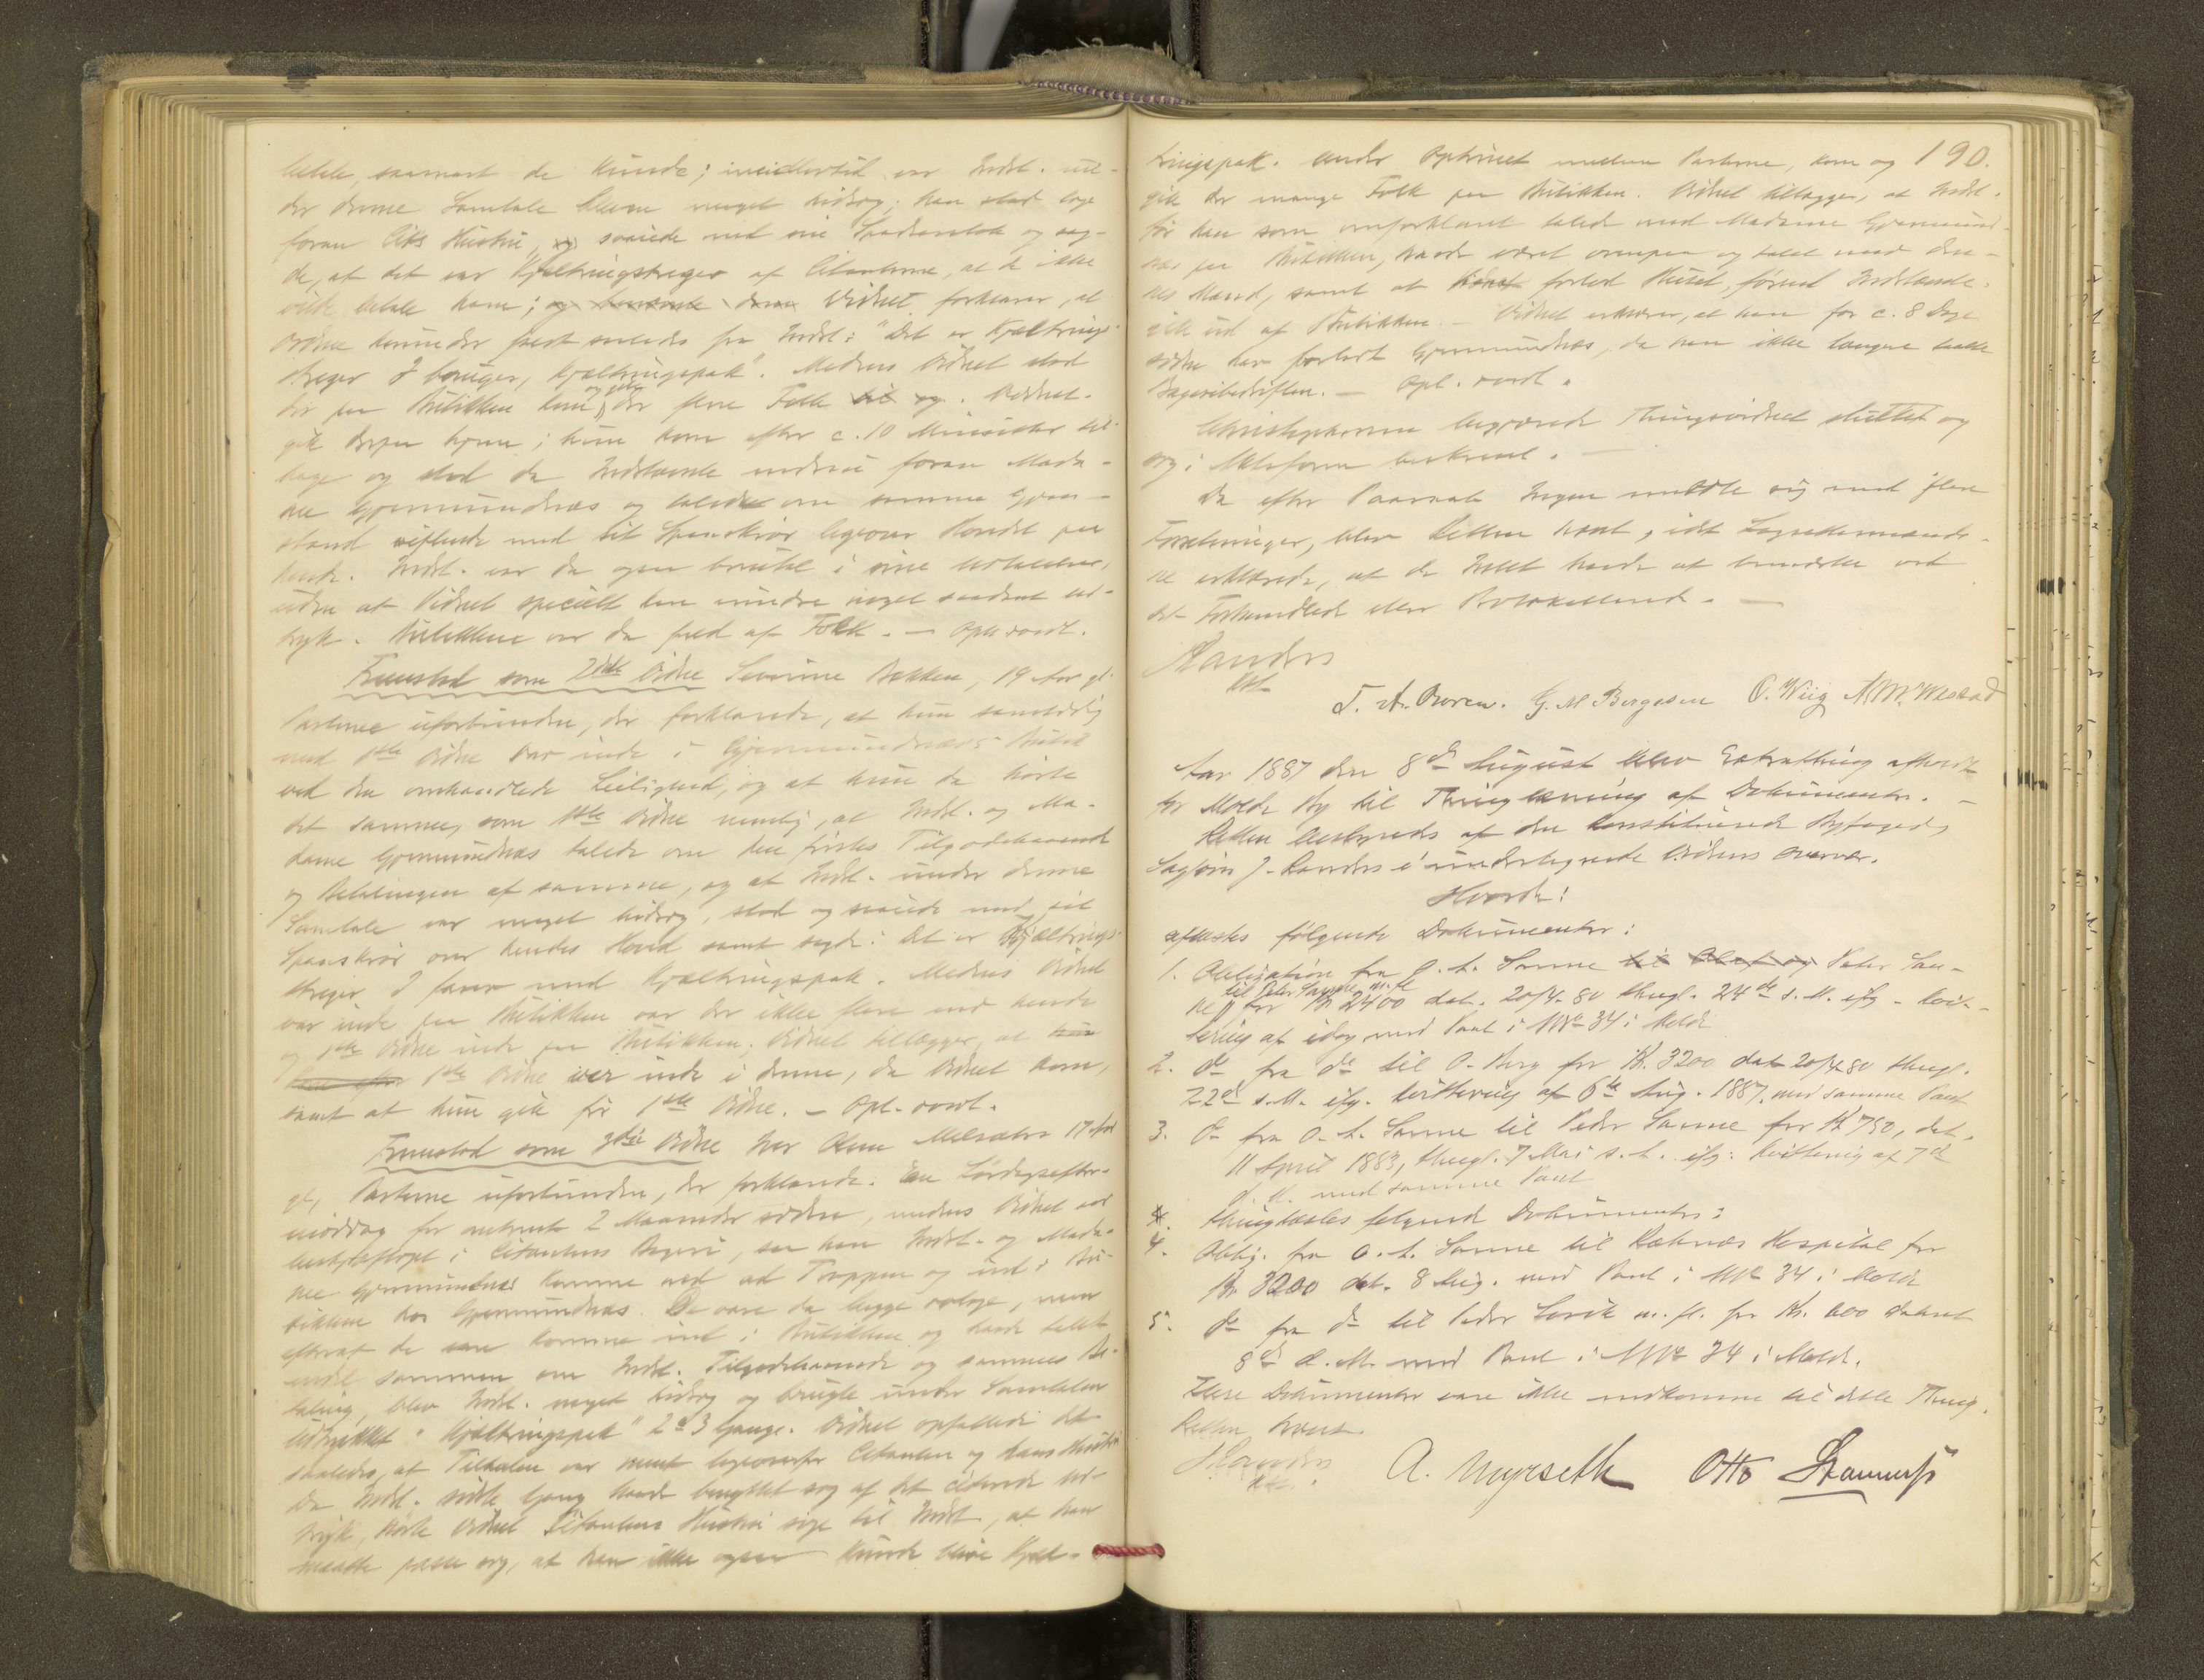 betale, saasnart de kunde; imidlertid var Indst. un-
der denne Samtale bleven meget hidsig; han stod lige
foran Cits Hustru, og svaiede med sin Spadserestok og sag-
de, at det var Kjæltringstreger af Citanterne, at de ikke
vilde betale ham; og Vidnet forklarer, at
Ordene kommer der frest saaledes fra Indst: "Det er Kjæltrings-
streger I bruger, Kjæltringspak". Medens Vidnet stod
der paa Butikken kom og gik der flere Folk til og. Vidnet
gik derpaa hjem; hun kom efter c. 10 Minutter til-
bage og stod da Indstævnte endnu foran Mada-
me Gjermundnæs og talede om samme Gjen-
stand viftende med sit Spanskrør ligeover Hovedet paa
hende. Indst. var da ogsaa brutal i sine Udtalelser,
uden at Vidnet specielt kan mindre noget saadant ud-
tryk. Butikken var da fuld af Folk. — Opl. vedt.
Fremstod som 2det Vidne Severine Bakken, 19 Aar gl.
Parterne uforbunden, der forklarede, at hun samtidig
med 1ste Vidne var inde i Gjermundnæs's Butik
ved den omhandlede Leilighed, og at hun da hørte
det samme, som 1ste Vidne nemlig, at Indst. og Ma-
dame Gjermundnæs talede om den førstes Tilgodehavende
og Betalingen af samme, og at Indst. under denne
Samtale var meget hidsig, stod og svaiede med sit
Spanskrør over hendes Hoved samt sagde: Det er Kjæltrings-
streger I farer med Kjæltringspak. Medens Vidnet
var inde paa Butikken var der ikke flere end hende
og 1ste Vidne inde paa Butikken; Vidnet tillægger, at hun
1ste Vidne var inde i denne, da Vidnet kom,
samt at hun gik før 1ste Vidne. — Opl. vedt.
Fremstod som 3die Vidne Iver Olsen Melsæter 17 Aar
gl, Parterne uforbunden, der forklarede: En Lørdagsefter-
middag for omtrent 2 Maaneder siden, medens Vidnet var
beskjæftiget i Citantens Bageri, saa han Indst. og Mada-
me Gjermundnæs komme ned ad Trappen og ind i Bu-
tikken hos Gjermundnæs. De vare da begge rolige, men
efterat de vare komne ind i Butikken og havde talet
endel sammen om Indst. Tilgodehavende og sammes Be-
taling, blev Indst. meget hidsig og brugte under Samtalen
Udtrykket "Kjæltringspak" 2 a 3 Gange. Vidnet opfattede det
saaledes, at Tiltalen var ment ligeoverfor Citanten og hans Hustru
Da Indst. sidste Gang havde benyttet sig af det citerede Ud-
tryk, hørte Vidnet Citantens Hustru sige til Indst, at han
maatte passe sig, at han ikke ogsaa kunde blive Kjæl-
190.
tringspak. Under Optrinet mellem Parterne, kom og
gik der mange Folk paa Butikken. Vidnet tillægger, at Indst.
før han som omforklaret talede med Madame Gjermund-
næs paa Butikken, havde været ovenpaa og talet med den-
nes Mand, samt at forlod Huset, førend Indstævnte
gik ud af Butikken — Vidnet erklærer, at han for c. 8 Dage
siden har forladt Gjermundnæs, da han ikke længere taalte
Bageribedriften. — Opl. vedt.
Christophersen begjærede Thingsvidnet sluttet og
sig i Akteform beskrevet. —
Da efter Paaraab Ingen meldte sig med flere
Forretninger, blev Retten hævet, idet Lagrettesmænde-
ne erklærede, at de Intet havde at bemærke ved
det Forhandlede eller Protokollerede. —
Randers
kst.
G. M Borgesen O. Wiig
Aar 1887 den 8de August blev Extrathing afholdt
for Molde By til Thinglæsning af Dokumenter. —
Retten betjentes af den konstituerede Byfoged,
Sagfører J. Randers i undertegnede Vidners Overvær.
Hvorda:
aflæstes følgende Dokumenter:
1. Obligation fra O. A. Sanne til Olaf og Peter San-
ne til Peter Sanne m. fl for Kr 2400 dat. 20/4-80 thingl. 24de s. M. ifg. Kvit-
tering af idag med Pant i MNo 34 i Molde
2. do fra do til O. Berg for Kr. 3200 dat 20/4 80 thingl.
22de s. M. ifg. Kvittering af 6te Aug. 1887, med samme Pant
3. do fra O. A. Sanne til Peder Sanne for Kr 750, dat.
11 April 1883, thingl. 7 Mai s. A. ifg. Kvittering af 7de
d. M. med samme Pant
Thinglæstes følgende Dokumenter:
4. Oblig. fra O. A. Sanne til Reknæs Hospital for
Kr 3200 dat. 8 Aug. med Pant i MNo 34 i Molde
5. do fra do til Peder m. fl. for Kr. 600 dateret
8de d. M. med Pant i MNo 34 i Molde.
Flere Dokumenter vare ikke indkomne til dette Thing.
Retten hævet
J Randers
kst.
A. Myrseth Otto